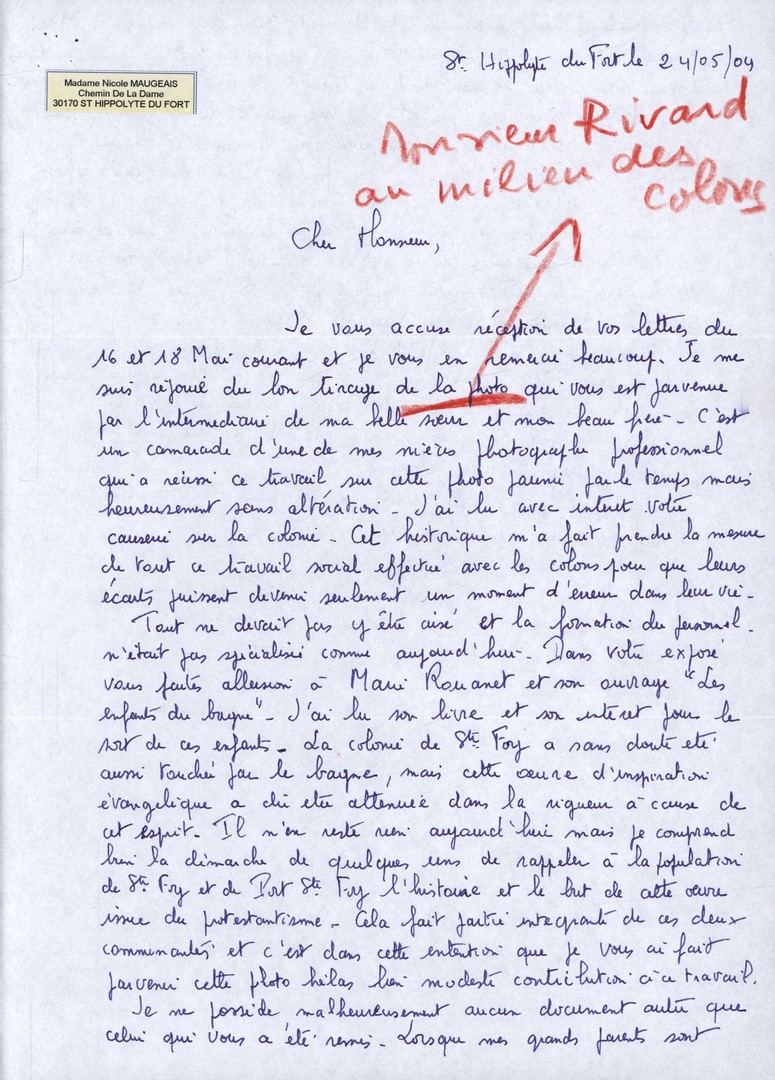 St. Hippolyte du Fort le 24/05/04
Madame Nicole MAUGEAIS
Chemin De La Dame
30170 ST HIPPOLYTE DU FORT
Monsieur Rivard
au milieu des
colons
Cher Monsieur,
Je vous accuse réception de vos lettres du
16 et 18 Mai courant et je vous en remercie beaucoup. Je me
suis réjouie du bon tirage de la photo qui vous est parvenue
par l'intermediaire de ma belle sœur et mon beau frère - C'est
un camarade d'une de mes nièces photographe professionnel
qui a réussi ce travail sur cette photo jaunie par le temps mais
heureusement sans altération - J'ai lu avec interet votre
causerie sur la colonie - Cet historique m'a fait prendre la mesure
de tout ce travail social effectué avec les colons pour que leurs
écarts puissent devenir seulement un moment d'erreur dans leur vie -
Tout ne devait pas y être aisé et la formation du personnel
n'était pas spécialisée comme aujourd'hui - Dans votre exposé
vous faites allusion à Marie Rouanet et son ouvrage "Les
enfants du bagne" - J'ai lu son livre et son interet pour le
sort de ces enfants - La colonie de Ste Foy a sans doute été
aussi touchée par le bagne, mais cette œuvre d'inspiration
évangelique a dû etre attenuée dans la rigueur à cause de
cet esprit - Il n'en reste rien aujourd'hui mais je comprend
bien la démarche de quelques uns de rappeler à la population
de Ste Foy et de Port Ste Foy l'histoire et le but de cette œuvre
issue du protestantisme - Cela fait partie integrante de ces deux
communautés et c'est dans cette entention que je vous ai fait
parvenir cette photo hélas bien modeste contribution à ce travail.
Je ne possède malheureusement aucun document autre que
celui qui vous a été remis - Lorsque mes grands parents sont